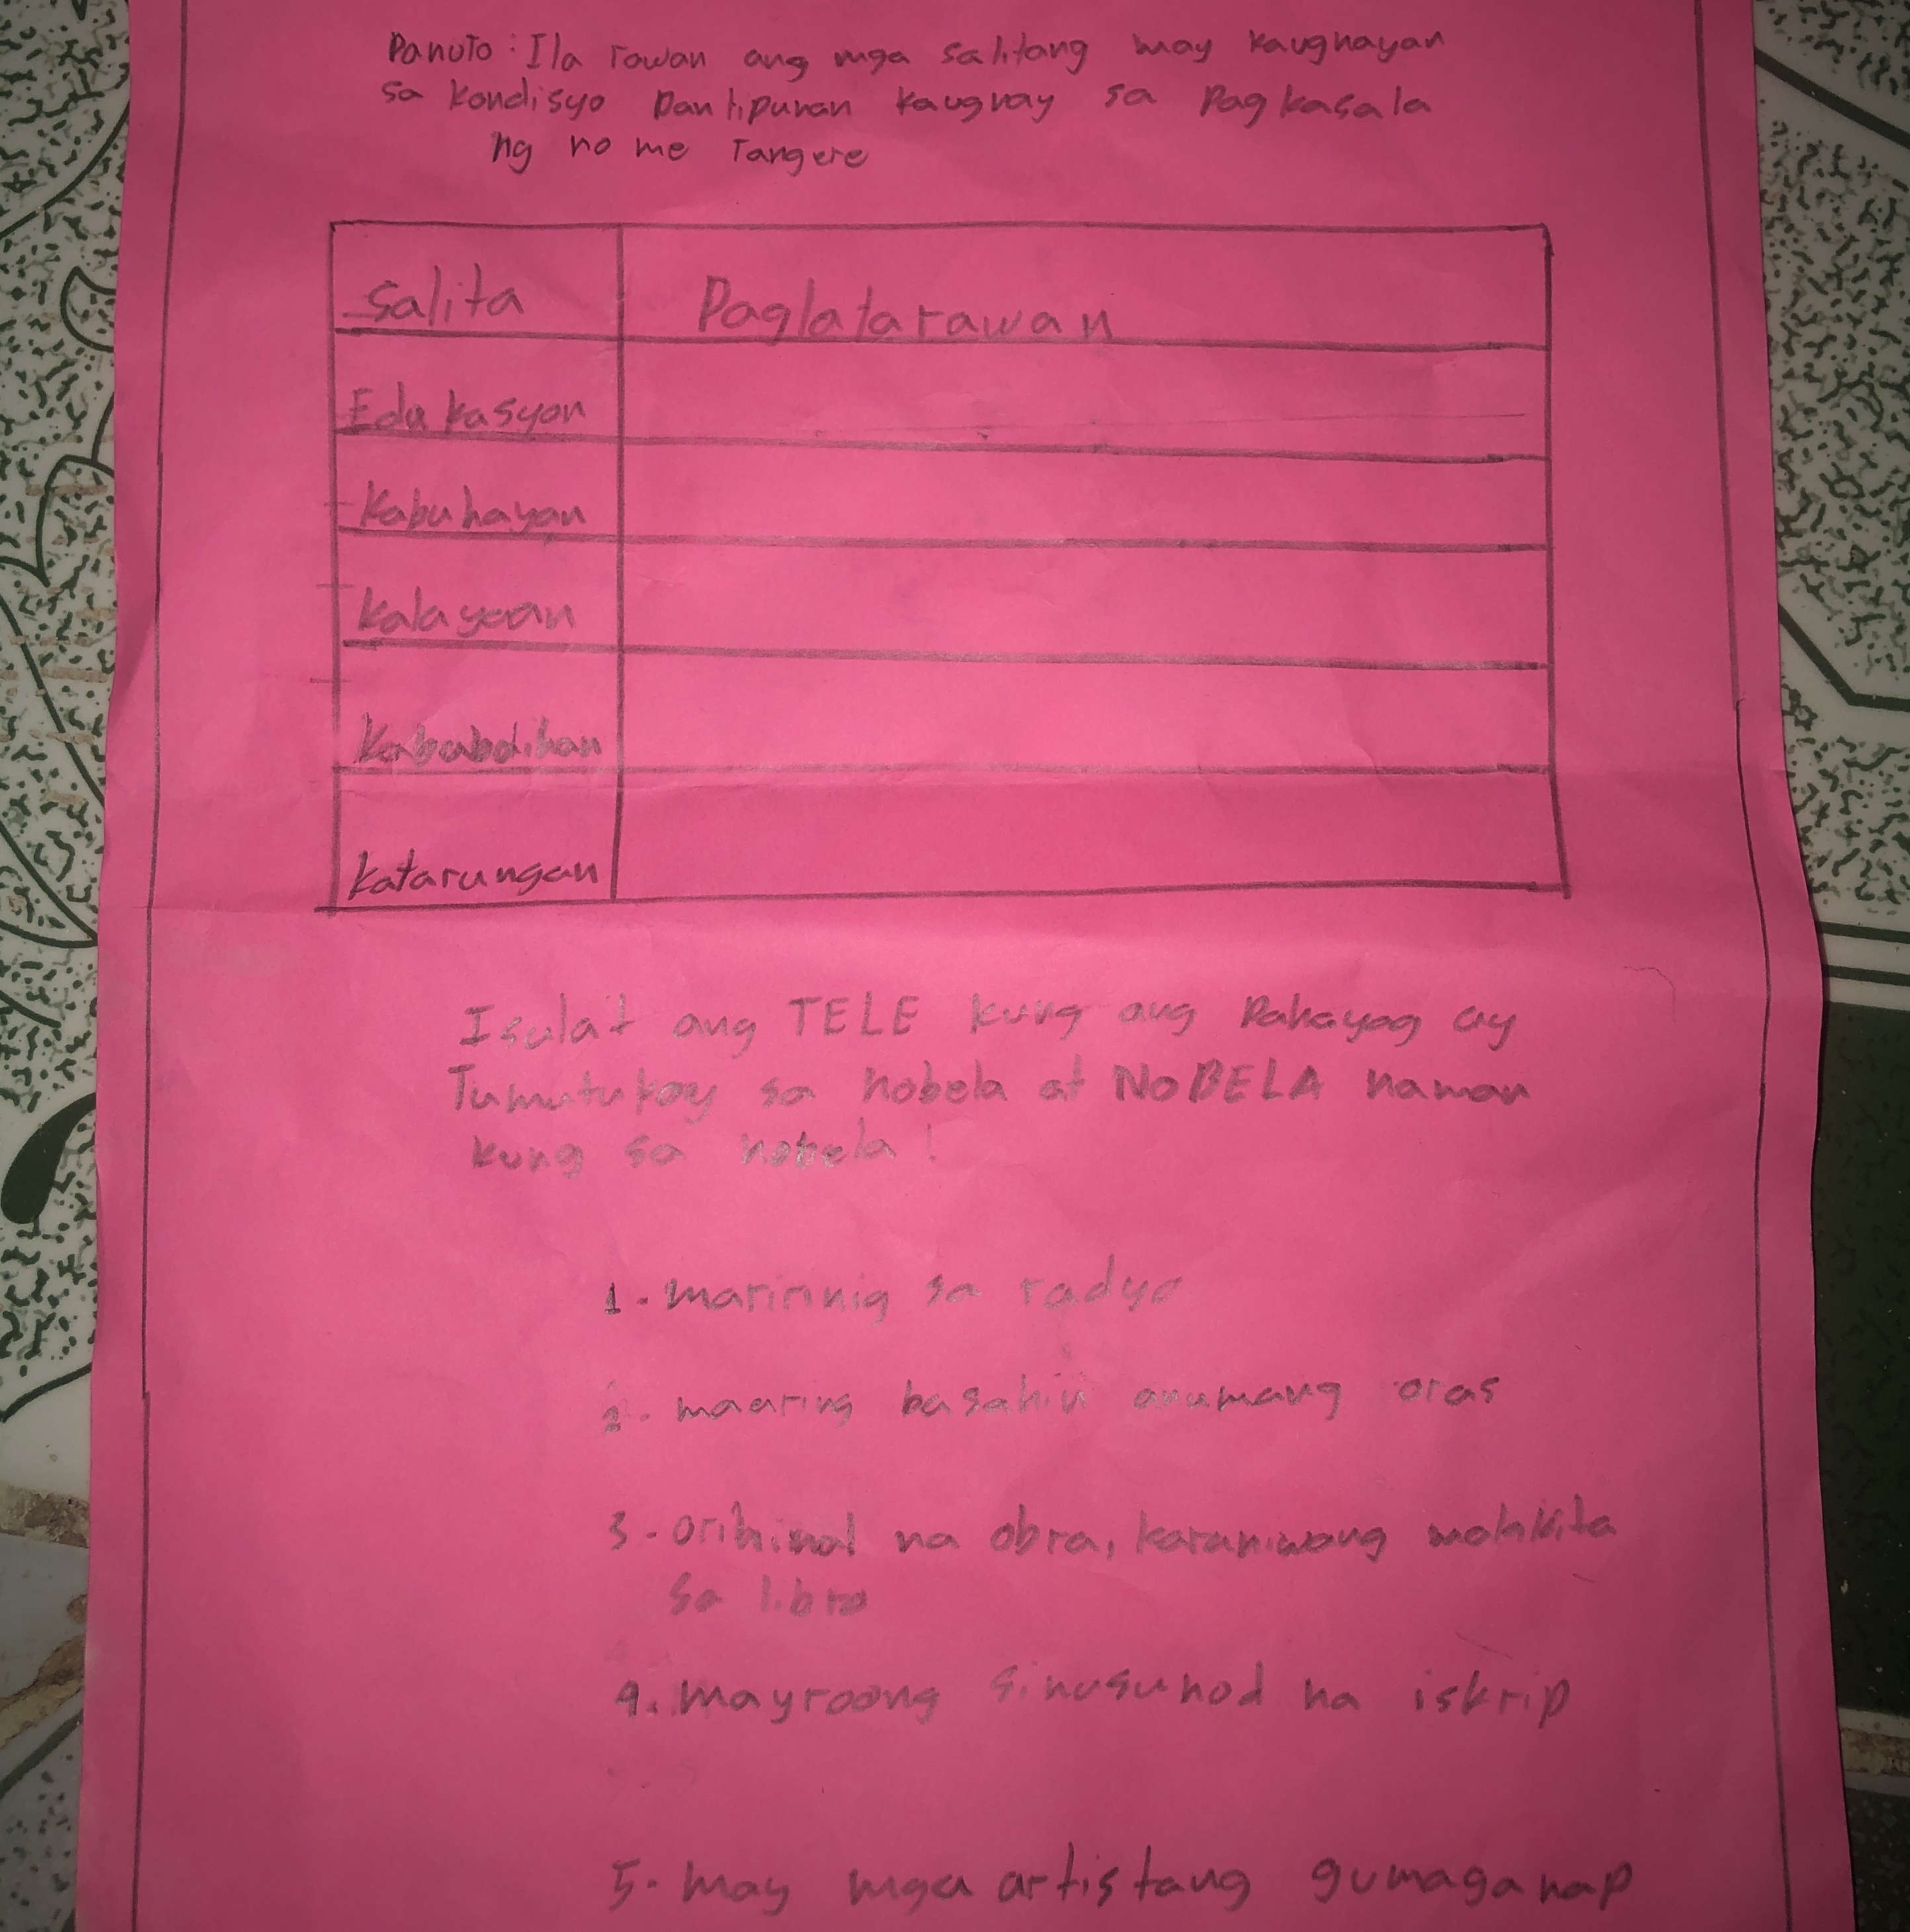 Panuto: Ila rawan ang mga salitang may kaugnayan
sa kondisyo Pantipunan kaugnay sa Pagkasala
ng no me Tangere
Salita Paglatarawan
Edukasyon
Kabuhayan
Kalayaan
Kababaihan
katarungan
Isulat ang TELE kung ang Pahayag ay
Tumutukoy sa nobela at NOBELA naman
kung sa nobela!
1. maririnig sa radyo
2. maaring basahin anumang oras
3. orihinal na obra, karaniwang makikita
sa libro
4. mayroong sinusunod na iskrip
5. may mga artistang gumaganap